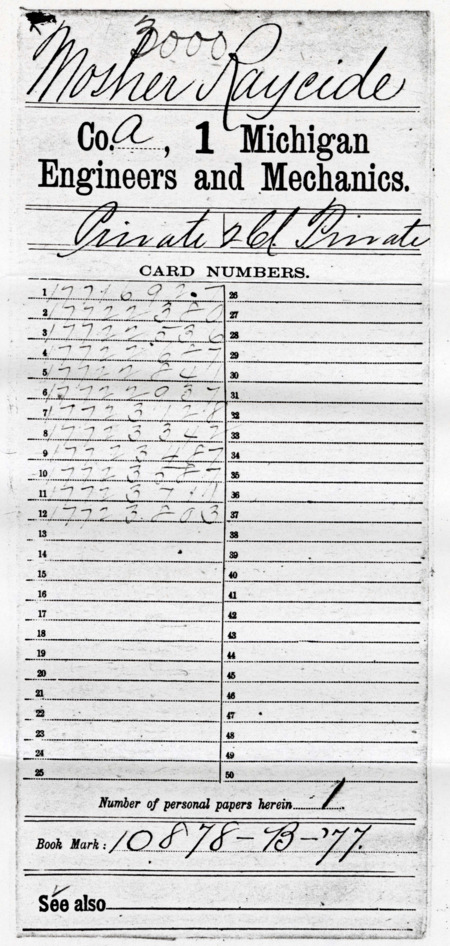 3000
Mosher Raycide
Co. A, 1 Michigan
Engineers and Mechanics.
Private | 2 Cl Private
CARD NUMBERS.
1 17716927 26
2 17722380 27
3 17722536 28
4 29
5 30
6 31
7 17723128 32
8 17723342 33
9 17723487 34
10 17723587 35
11 36
12 17723803 37
13 38
14 39
15 40
16 41
17 42
18 43
19 44
20 45
21 46
22 47
23 48
24 49
25 50
Number of personal papers herein 1
Book Mark: 10878-B-'77.
See also